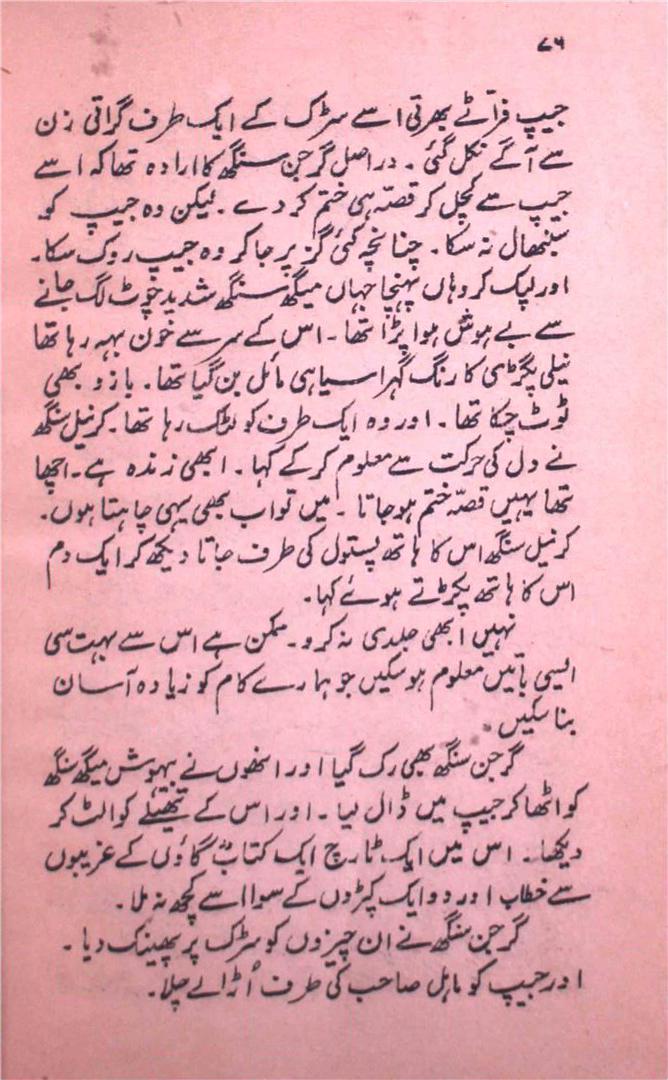 ۷۶
جیپ فراٹے بھرتی اسے سڑک کے ایک طرف گراتی زن
سے آگے نکل گئی ۔ دراصل گرجن سنگھ کا ارادہ تھا کہ اسے
جیپ سے کچل کر قصّہ ہی ختم کر دے ۔ لیکن وہ جیپ کو
سنبھال نہ سکا ۔ چنانچہ کئی گز پر جا کر وہ جیپ روک سکا۔
اور لپک کر وہاں پہنچا جہاں میگھ سنگھ شدید چوٹ لگ جانے
سے بے ہوش ہوا پڑا تھا ۔ اس کے سر سے خون بہہ رہا تھا
نیلی پگڑی کا رنگ گہرا سیاہی مائل بن گیا تھا۔ بازو بھی
ٹوٹ چکا تھا ۔ اور وہ ایک طرف کو لٹک رہا تھا ۔ کرنیل سنگھ
نے دل کی حرکت سے معلوم کر کے کہا ۔ ابھی زندہ ہے ۔ اچھا
تھا یہیں قصّہ ختم ہو جاتا ۔ میں تو اب بھی یہی چاہتا ہوں۔
کرنیل سنگھ اس کا ہاتھ پستول کی طرف جاتا دیکھ کر ایک دم
اس کا ہاتھ پکڑتے ہوئے کہا۔
نہیں ابھی جلدی نہ کرو ۔ ممکن ہے اس سے بہت سی
ایسی باتیں معلوم ہو سکیں جو ہمارے کام کو زیادہ آسان
بنا سکیں ۔
گرجن سنگھ بھی رک گیا اور انھوں نے بیہوش میگھ سنگھ
کو اٹھا کر جیپ میں ڈال لیا ۔ اور اس کے تھیلے کو الٹ کر
دیکھا ۔ اس میں ایک ٹارچ ایک کتاب گاؤں کے غریبوں
سے خطاب اور دو ایک کپڑوں کے سوا اسے کچھ نہ ملا ۔
گرجن سنگھ نے ان چیزوں کو سڑک پر پھینک دیا ۔
اور جیپ کو ماہل صاحب کی طرف اُڑا لے چلا۔